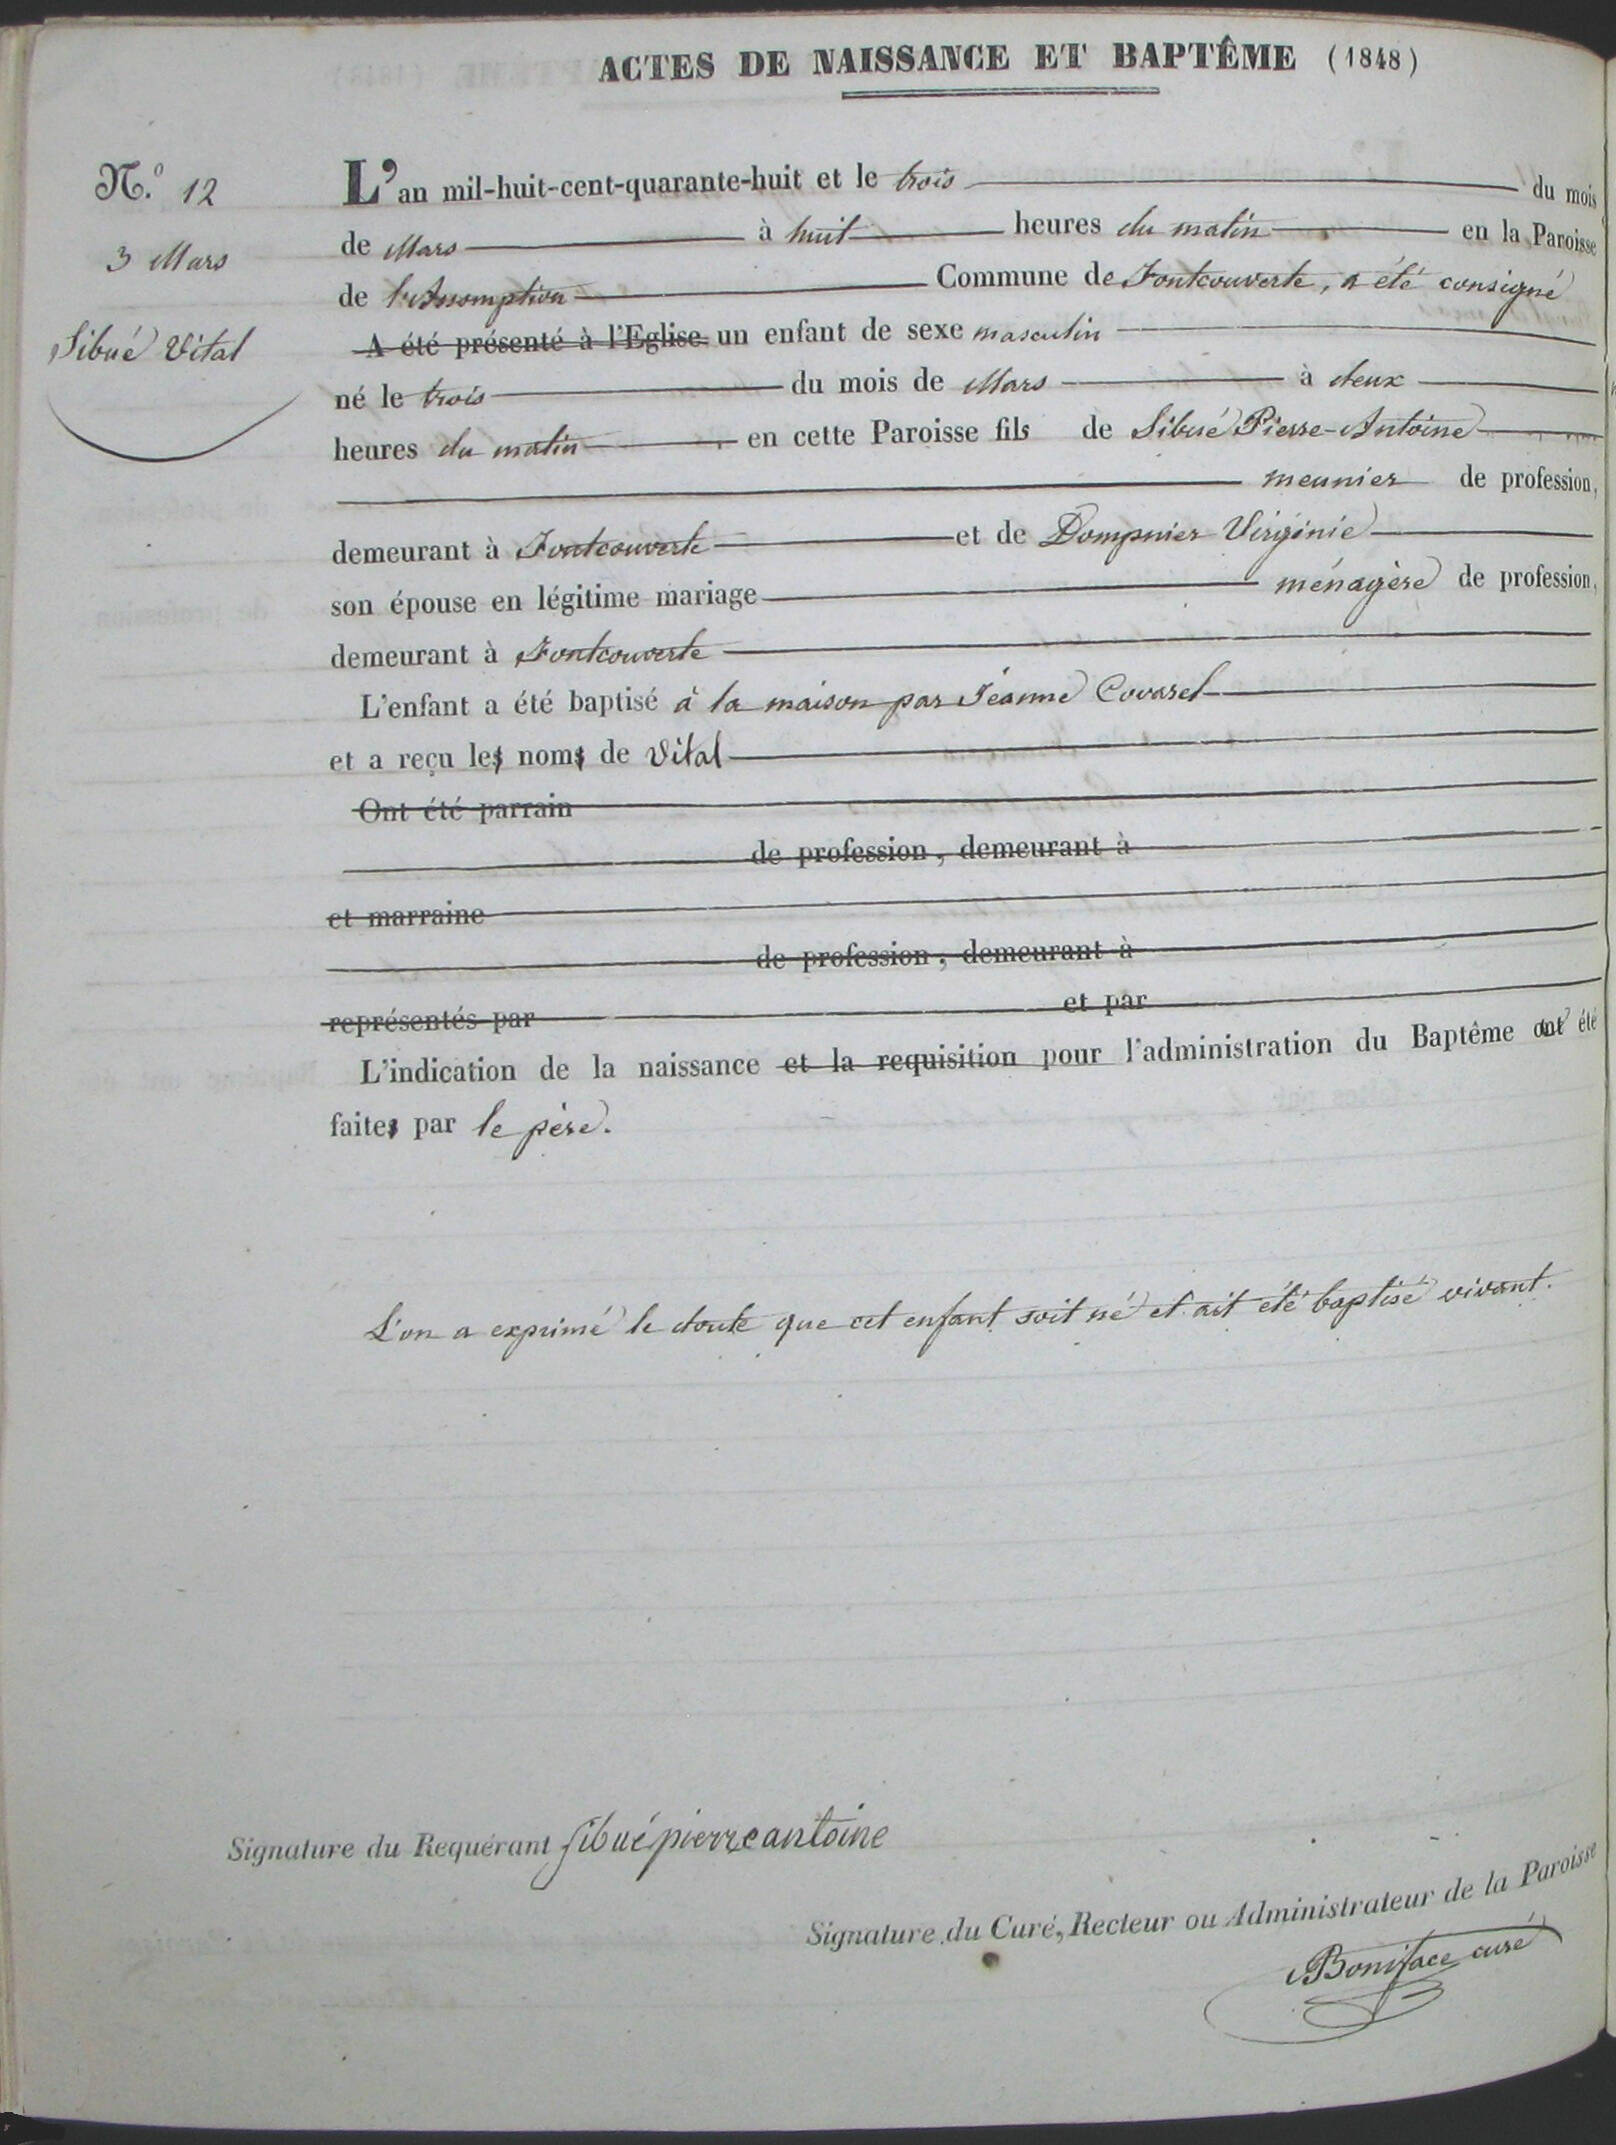 ACTES DE NAISSANCE ET BAPTÊME (1848)
N.º 12
3 Mars
Sibué Vital
L'an mil-huit-cent-quarante-huit et le trois du mois
de Mars à huit heures du matin en la Paroisse
de l'Assomption Commune de Fontcouverte, a été consigné
A été présenté à l'Eglise un enfant de sexe masculin
né le trois du mois de Mars à deux
heures du matin en cette Paroisse fils de Sibué Pierre-Antoine
meunier de profession,
demeurant à Fontcouverte et de Dompnier Virginie
son épouse en légitime mariage ménagère de profession,
demeurant à Fontcouverte
L'enfant a été baptisé à la maison par Jeanne Covarel
et a reçu les noms de Vital
Ont été parrain
de profession, demeurant à
et marraine
de profession, demeurant à
représentés par et par
L'indication de la naissance et la requisition pour l'administration du Baptême ont été
faites par le père.
L'on a exprimé le doute que cet enfant soit né et ait été baptisé vivant.
Signature du Requérant Sibué pierre antoine
Signature du Curé, Recteur ou Administrateur de la Paroisse
Boniface curé